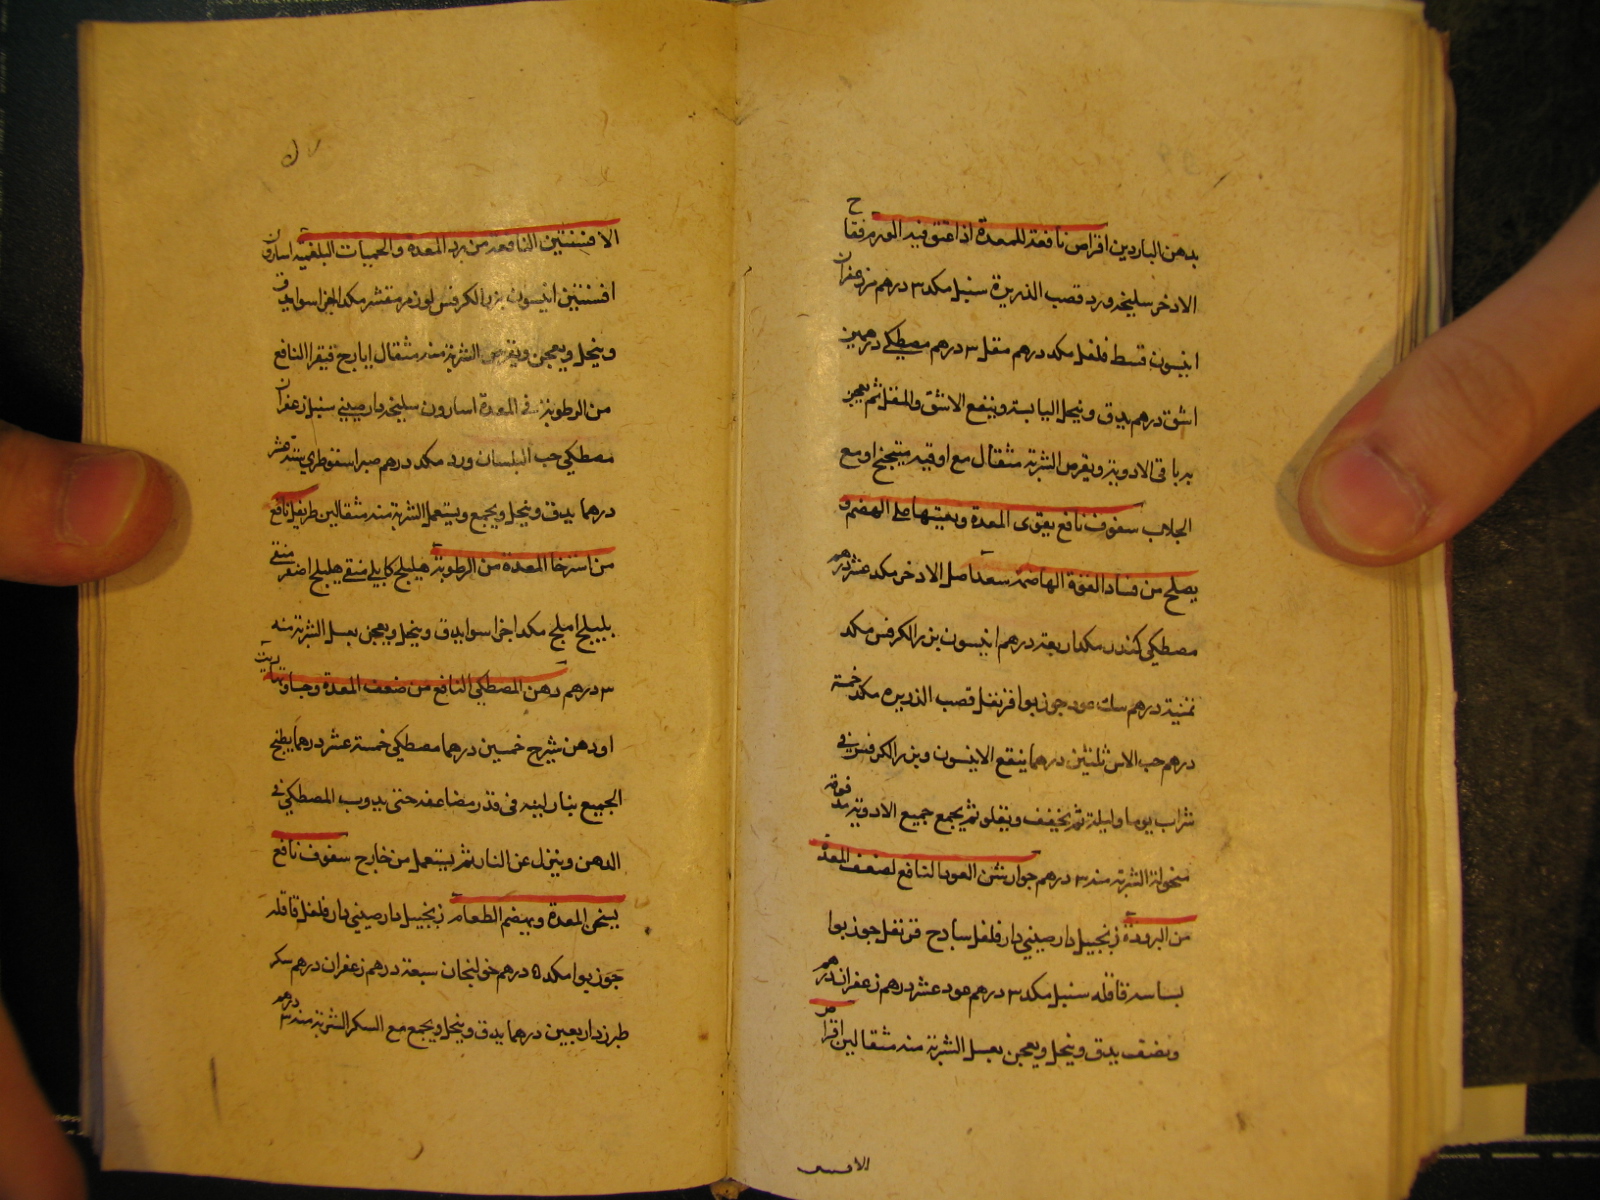 بدهن الباردين اقراص نافعة للمعدة اذا عتق فيه الورم فقاح
الادخر سليخه ورد قصب الذريرة سنبل مكد ٣ درهم مر زعفران
انيسون قسط فلفل مكد درهم مقل ٣ درهم مصطكي درهمين
اشق درهم يدق وينخل اليابسة وينقع الاشق والمقل ثم يعجن
بد باقي الادوية ويقرص الشربة مثقال مع اوقية ميبختج او مع
الجلاب سفوف نافع يقوى المعدة ويعينها على الهضم و
يصلح من فساد القوة الهاضمة سعد اصل الادخر مكد عشر درهم
مصطكي كندر مكد اربعة درهم انيسون بزر الكرفس مكد
ثمنية درهم سك عود جوزبوا قرنفل قصب الذريره مكد خمسة
درهم حب الاس ثلثين درهما ينقع الانيسون وبزر الكرفس في
شراب يوما وليلة ثم يجفف ويقلو ثم يجمع جميع الادوية مدقوقة
منخولة الشربة منه ٣ درهم جوارشن العود النافع لضعف المعدة
من البرودة زنجبيل دارصيني دارفلفل سادج قرنفل جوزبوا
بسباسه قاقله سنبل مكد ٣ درهم عود عشر درهم زعفران درهم
ونصف يدق وينخل ويعجن بعسل الشربة منه مثقالين اقراص
الافسنتين
الافسنتين النافعه من برد المعدة والحميات البلغمية اسارون
افسنتين انيسون بزر الكرفس لوز مر مقشر مكد اجزا سوا يدق
وينخل ويعجن ويقرص الشربة منه مثقال ايارج فيقرا النافع
من الرطوبة في المعدة اسارون سليخه دارصيني سنبل زعفران
مصطكي حب البلسان ورد مكد درهم صبر اسقوطري ستة عشر
درهما يدق وينخل ويجمع ويستعمل الشربة منه مثقالين طريفل نافع
من استرخا المعدة من الرطوبة هليلج كابلي منقي هليلج اصفر منقي
بليلج املج مكد اجزا سوا يدق وينخل ويعجن بعسل الشربة منه
٣ درهم دهن المصطكي النافع من ضعف المعدة وجساوتها زيت
او دهن شيرج خمسين درهما مصطكي خمسة عشر درهما يطبخ
الجميع بنار لينه في قدر مضاعفه حتى يدوب المصطكي في
الدهن وينزل عن النار ثم يستعمل من خارج سفوف نافع
يسخن المعدة ويهضم الطعام زنجبيل دارصيني دارفلفل قاقله
جوزبوا مكد ٥ درهم خولنجان سبعة درهم زعفران درهم سكر
طبرزد اربعين درهما يدق وينخل ويجمع مع السكر الشربة منه ٣ درهم